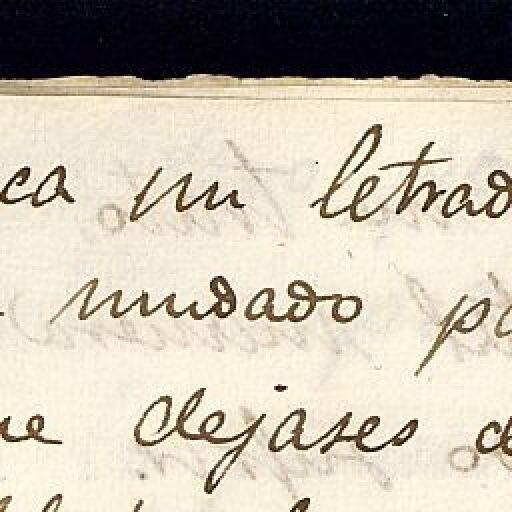 ca un letrad
mudado pa
ue dejases d